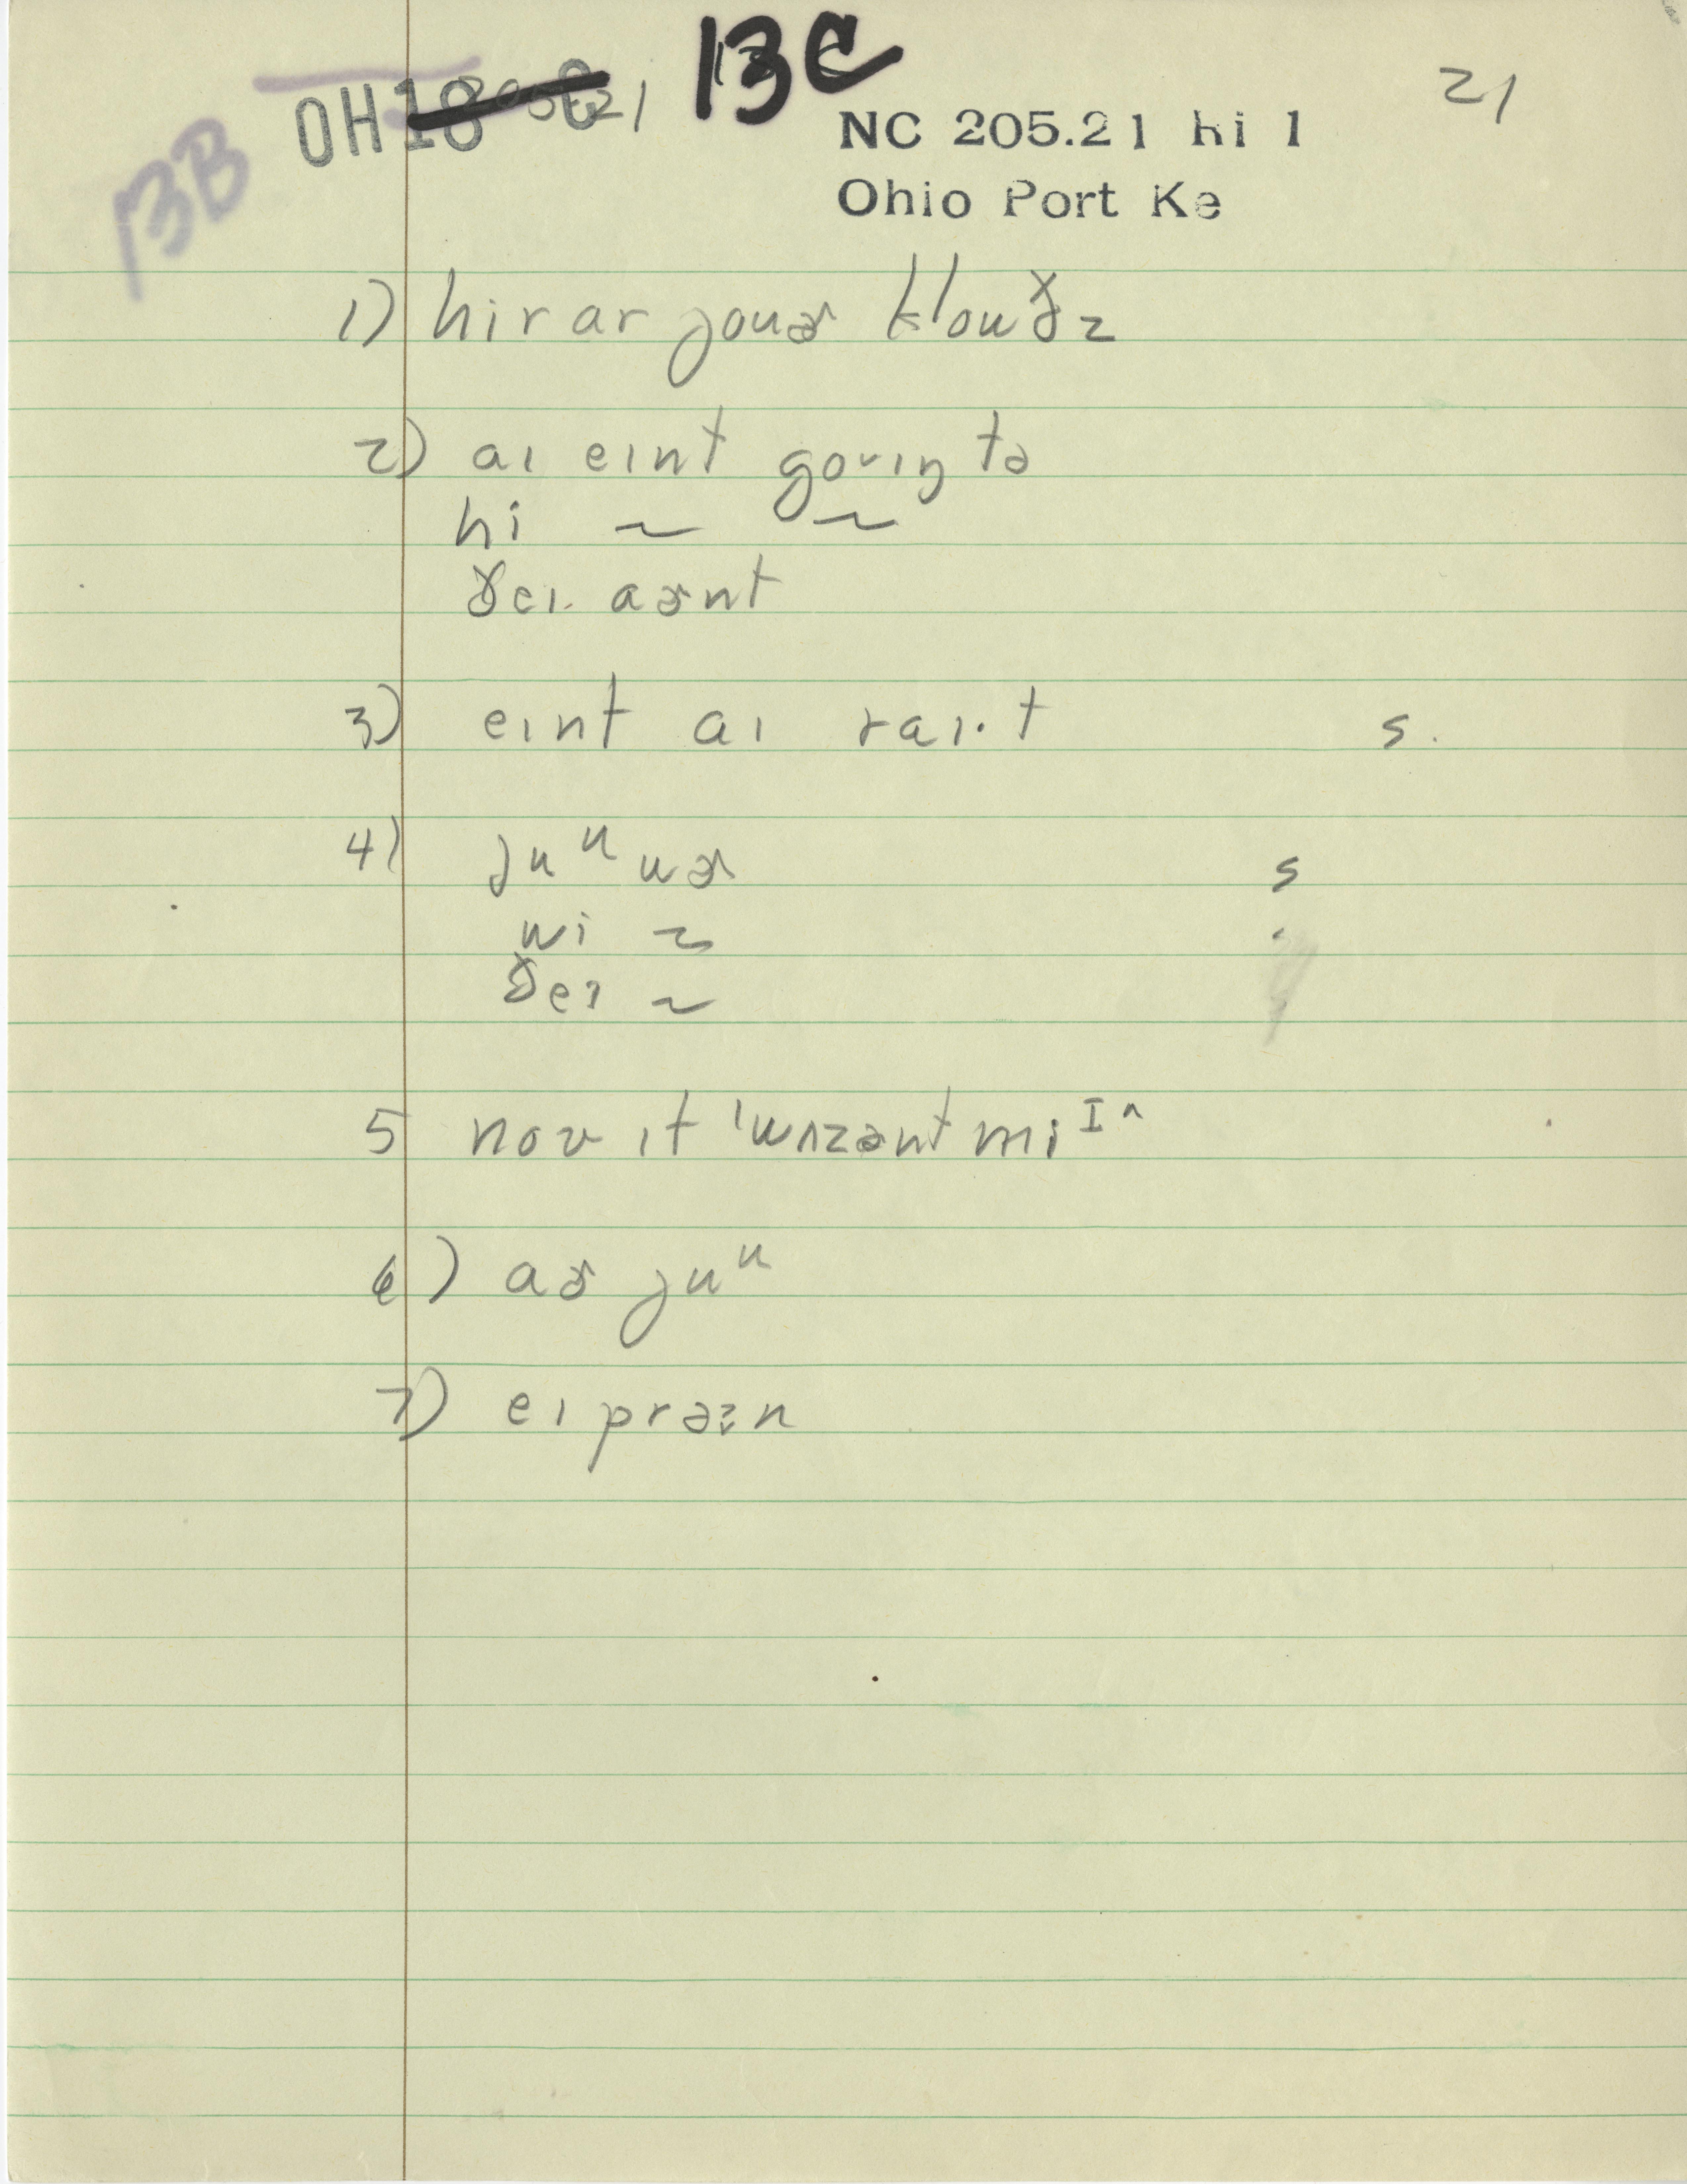 13C
21
OH 18
NC 205.21 hi 1
13B
Ohio Port Ke
1) hir ar jouɚ klouðz
2) aɪ eɪnt goʊɪŋ tə
hi ~ ~
ðeɪ. aɚnt
3) eɪnt aɪ raɪ.t s.
4) juᵘ wɚ s
wi ~
ðeɪ ~
5 noʊ ɪt 'wʌzənt mi ɪ^
6) aɚ juᵘ
7) eɪprən